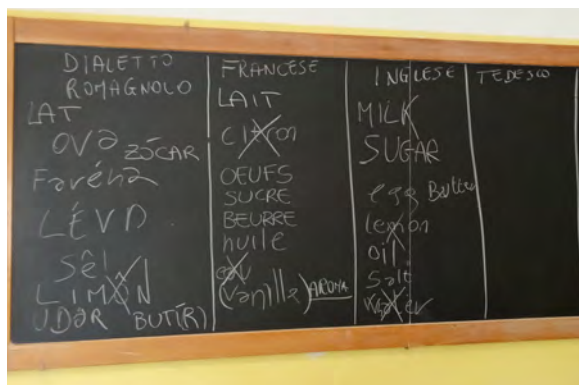 DIALETTO
ROMAGNOLO
LAT
OVA ZÓCAR
Favéna
LÉVD
Sêl
LIMÓN
UDÔR BUTÍ(R)
FRANCESE
LAIT
citron
OEUFS
SUCRE
BEURRE
huile
(vanille) AROMA
INGLESE
MILK
SUGAR
egg Butter
lemon
oil
Salt
water
TEDESCO